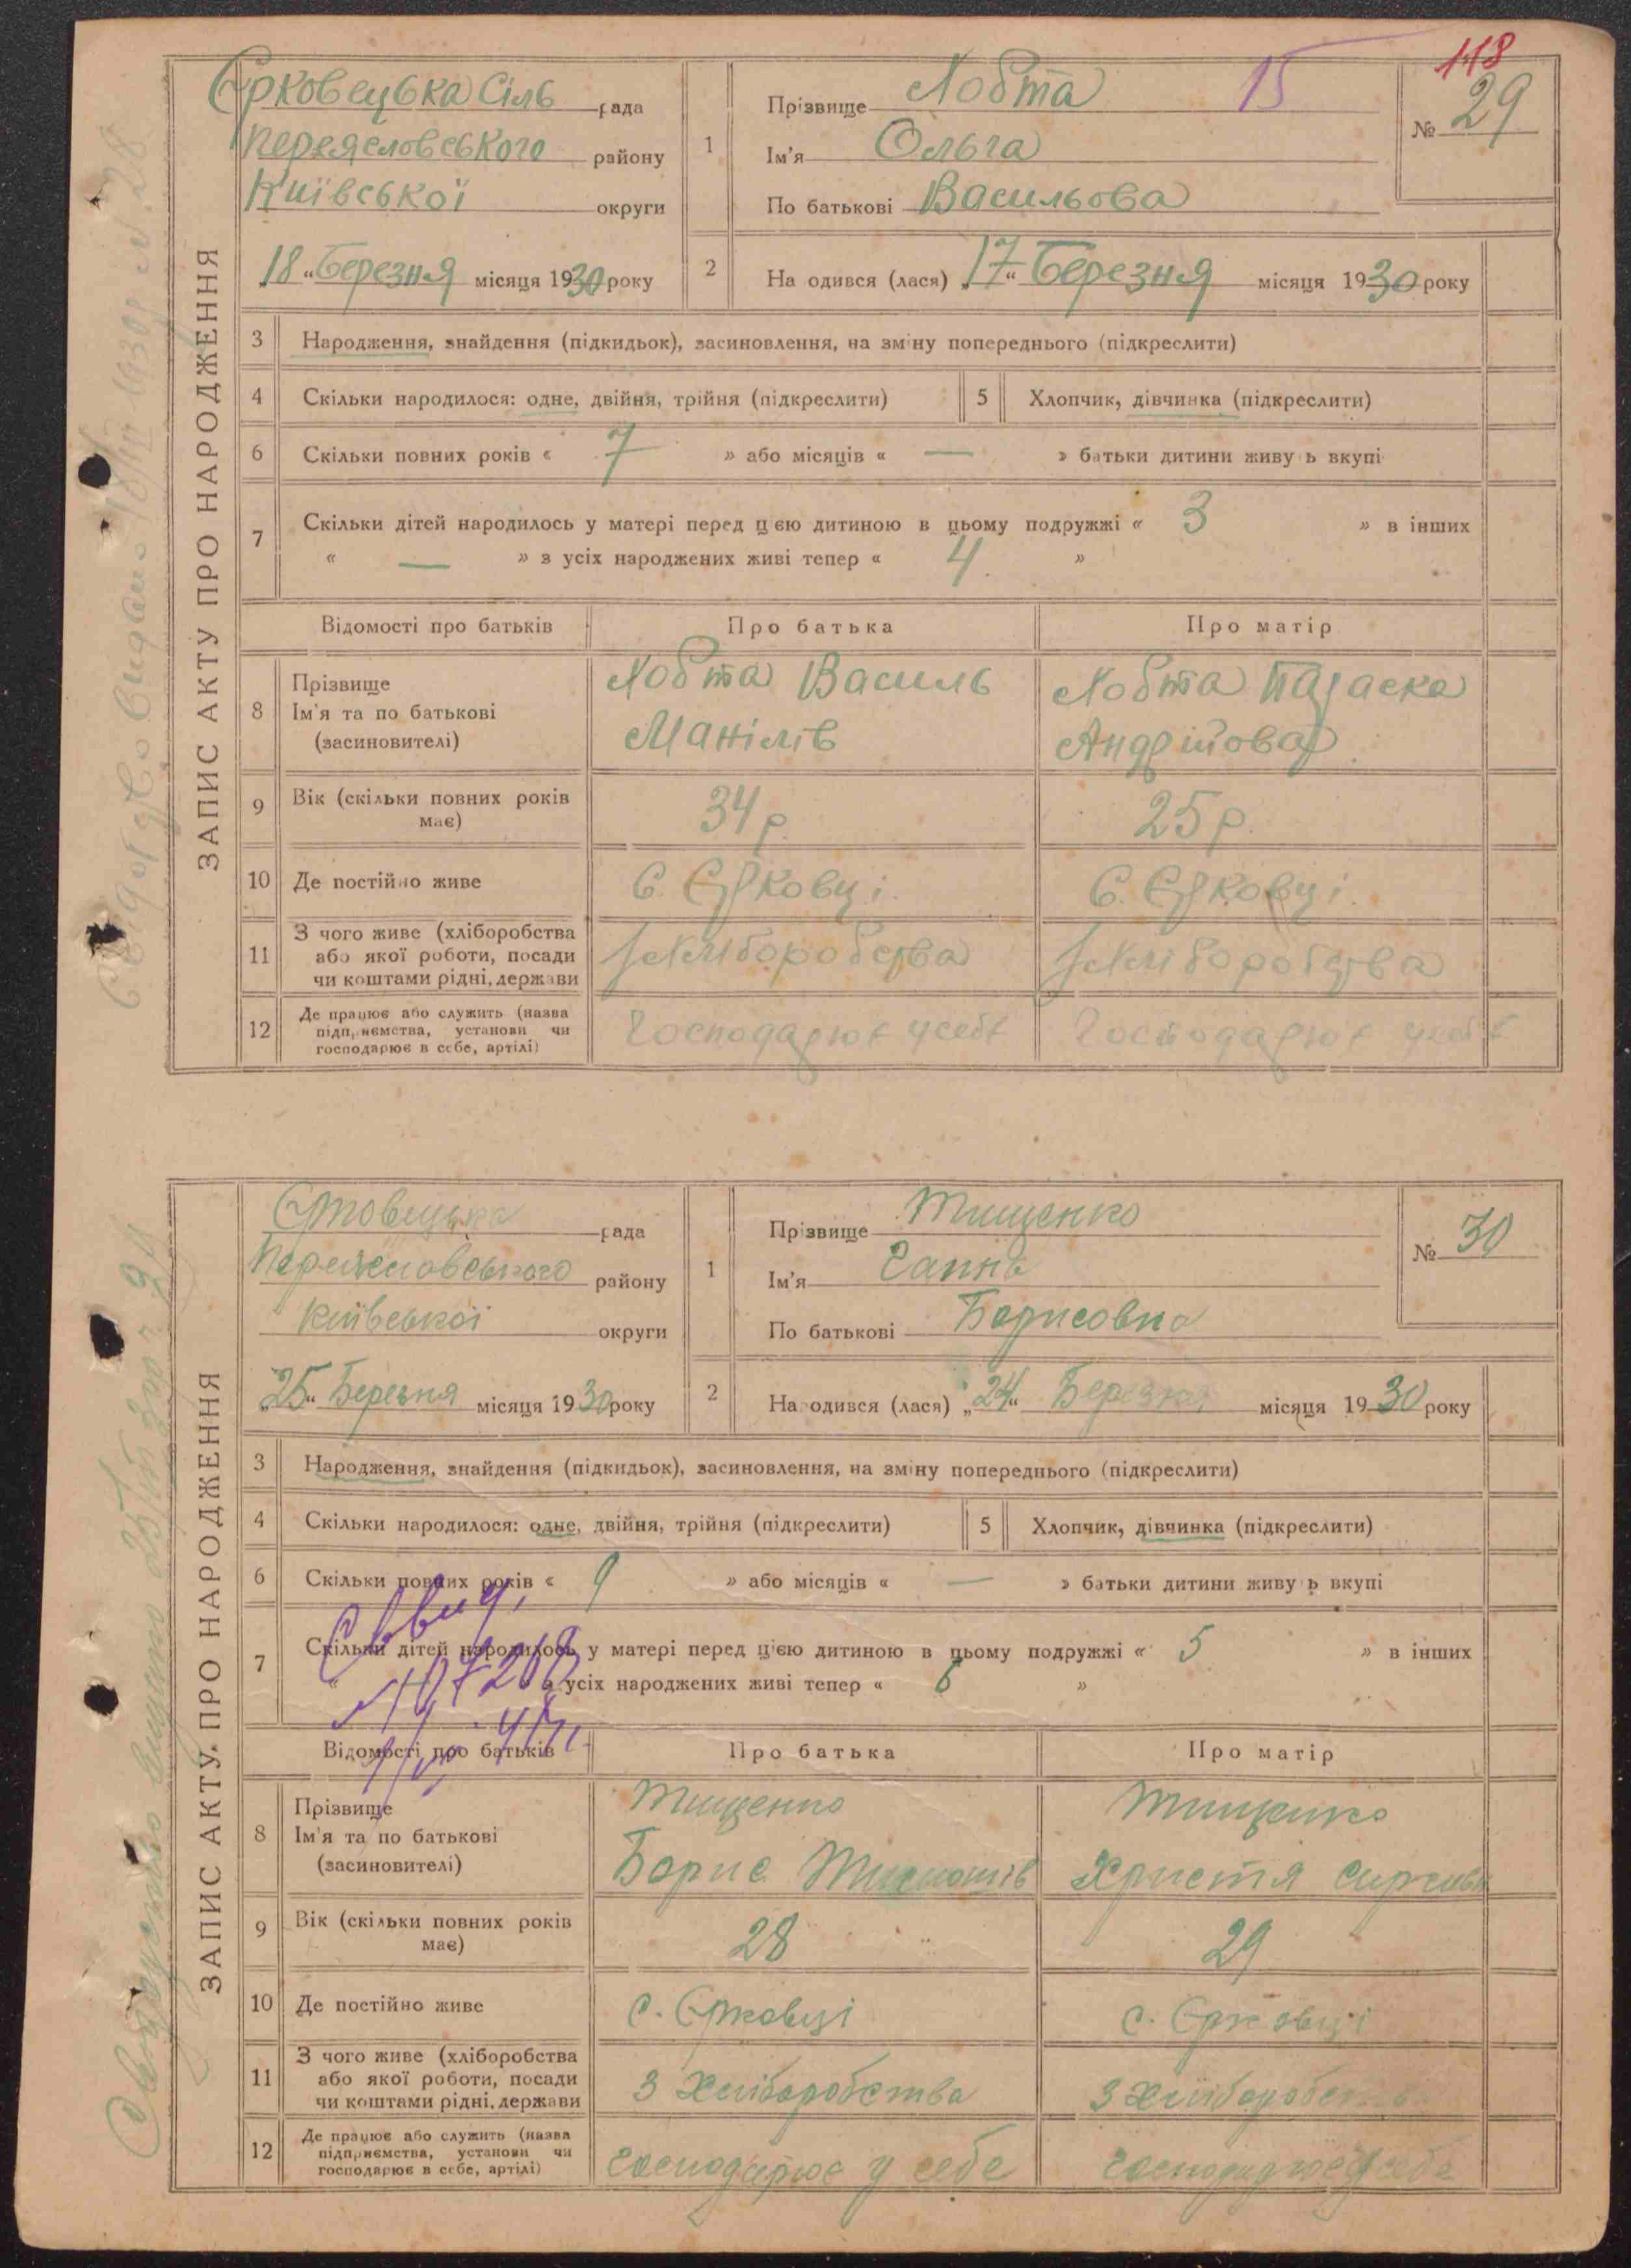 118
Єрковецька Сіль рада
Переяславського району
Київської округи
„18“ Березня місяця 1930 року
1
Прізвище Лобта 15
Ім'я Ольга
По батькові Васильова
№ 29
2
Народився (лася) „17“ Березня місяця 1930 року
ЗАПИС АКТУ ПРО НАРОДЖЕННЯ
3 Народження, знайдення (підкидьок), засиновлення, на зміну попереднього (підкреслити)
4 Скільки народилося: одне, двійня, трійня (підкреслити)
5 Хлопчик, дівчинка (підкреслити)
6 Скільки повних років « 7 » або місяців « — » батьки дитини живуть вкупі
7 Скільки дітей народилось у матері перед цією дитиною в цьому подружжі « 3 » в інших
« — » з усіх народжених живі тепер « 4 »
Відомості про батьків
Про батька
Про матір
8 Прізвище
Ім'я та по батькові
(засиновителі)
Лобта Василь
Манілів
Лобта Параска
Андрійова
9 Вік (скільки повних років
має)
34 р.
25 р.
10 Де постійно живе
с. Єрковці.
с. Єрковці.
11 З чого живе (хліборобства
або якої роботи, посади
чи коштами рідні, держави
з хліборобства
з хліборобства
12 Де працює або служить (назва
підприємства, установи чи
господарює в себе, артілі)
Господарює у себе
Господарює у себе
Єрковецька рада
Переяславського району
Київської округи
„25“ Березня місяця 1930 року
1
Прізвище Тищенко
Ім'я Ганна
По батькові Борисовна
№ 30
2
Народився (лася) „24“ Березня місяця 1930 року
ЗАПИС АКТУ ПРО НАРОДЖЕННЯ
3 Народження, знайдення (підкидьок), засиновлення, на зміну попереднього (підкреслити)
4 Скільки народилося: одне, двійня, трійня (підкреслити)
5 Хлопчик, дівчинка (підкреслити)
6 Скільки повних років « 9 » або місяців « — » батьки дитини живуть вкупі
7 Скільки дітей народилось у матері перед цією дитиною в цьому подружжі « 5 » в інших
« » з усіх народжених живі тепер « 6 »
Відомості про батьків
Про батька
Про матір
8 Прізвище
Ім'я та по батькові
(засиновителі)
Тищенко
Борис
Тищенко
Христя
9 Вік (скільки повних років
має)
28
29
10 Де постійно живе
с. Єрковці
с. Єрковці
11 З чого живе (хліборобства
або якої роботи, посади
чи коштами рідні, держави
З Хліборобства
З Хліборобства
12 Де працює або служить (назва
підприємства, установи чи
господарює в себе, артілі)
Господарює у себе
Господарює у себе